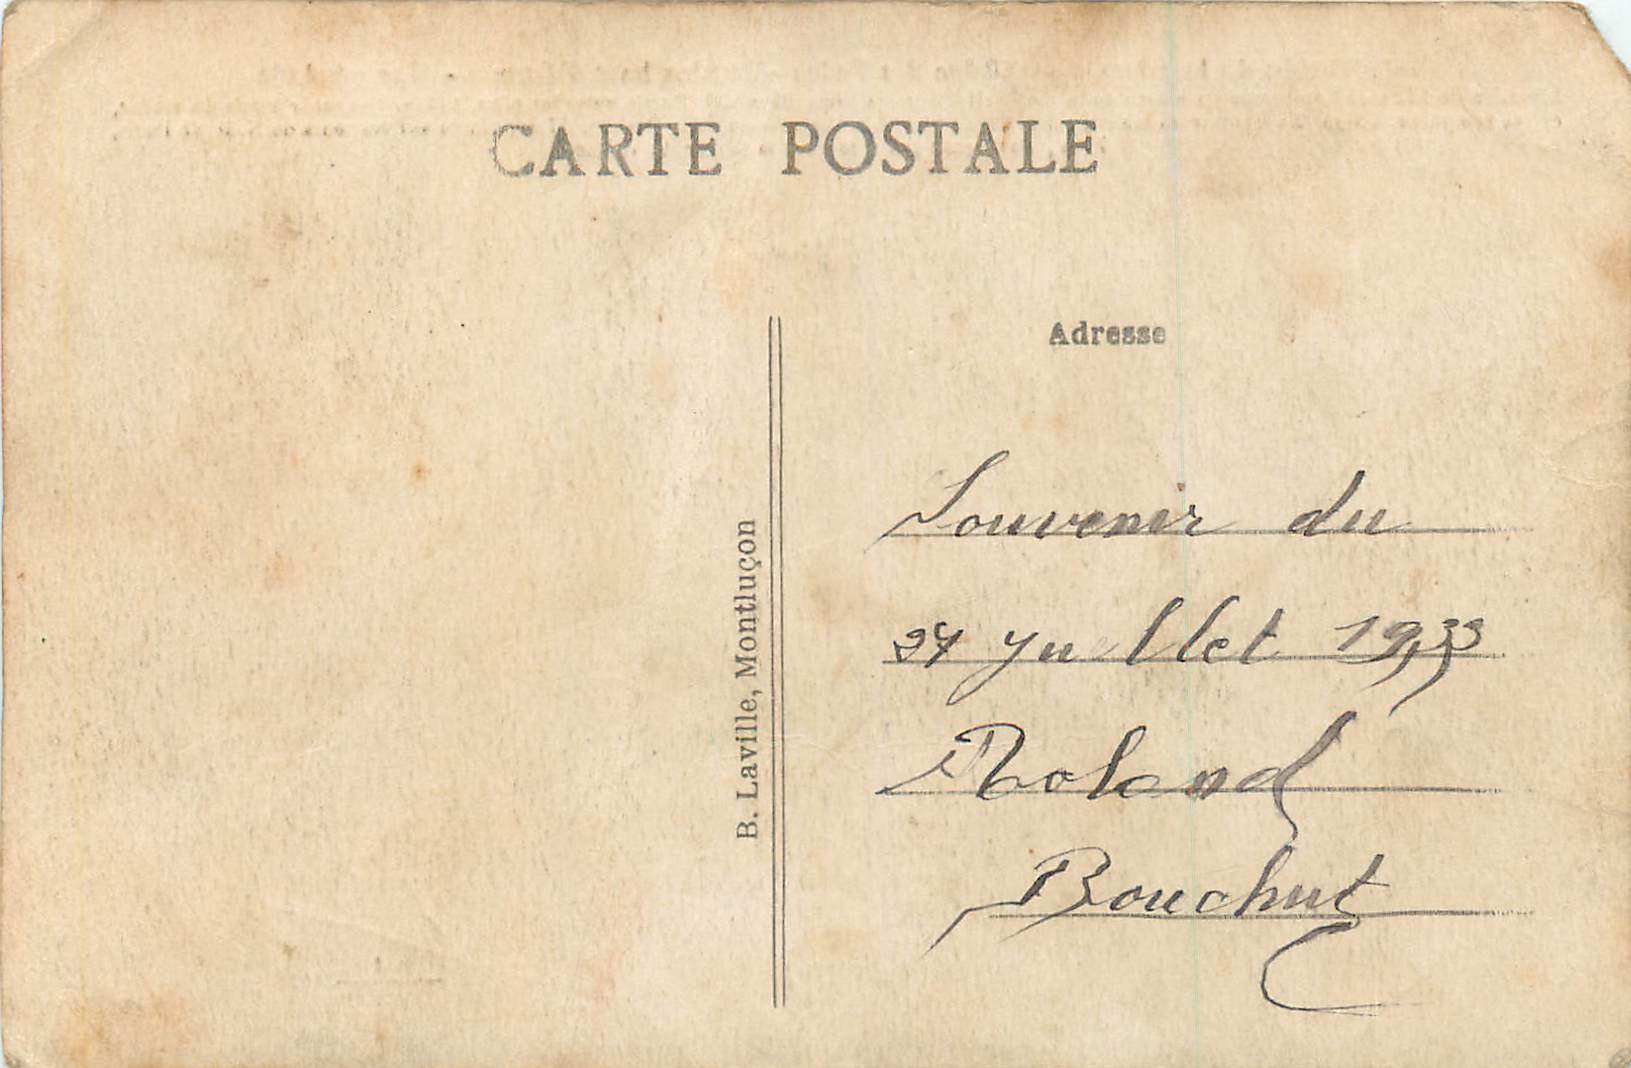 CARTE POSTALE
Adresse
B. Laville, Montluçon
Souvenir du
24 juillet 1933
Roland
Bouchut